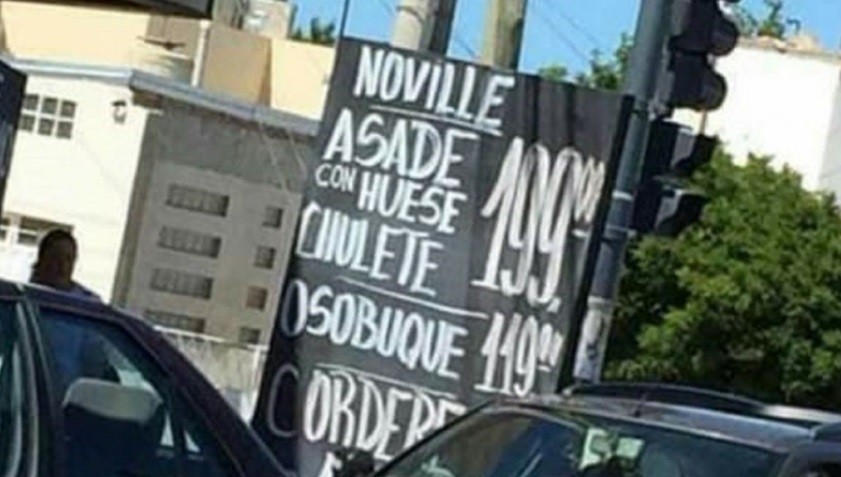 NOVILLE
ASADE
CON HUESE
199.00
CHULETE
OSOBUQUE 119.00
CORDERE